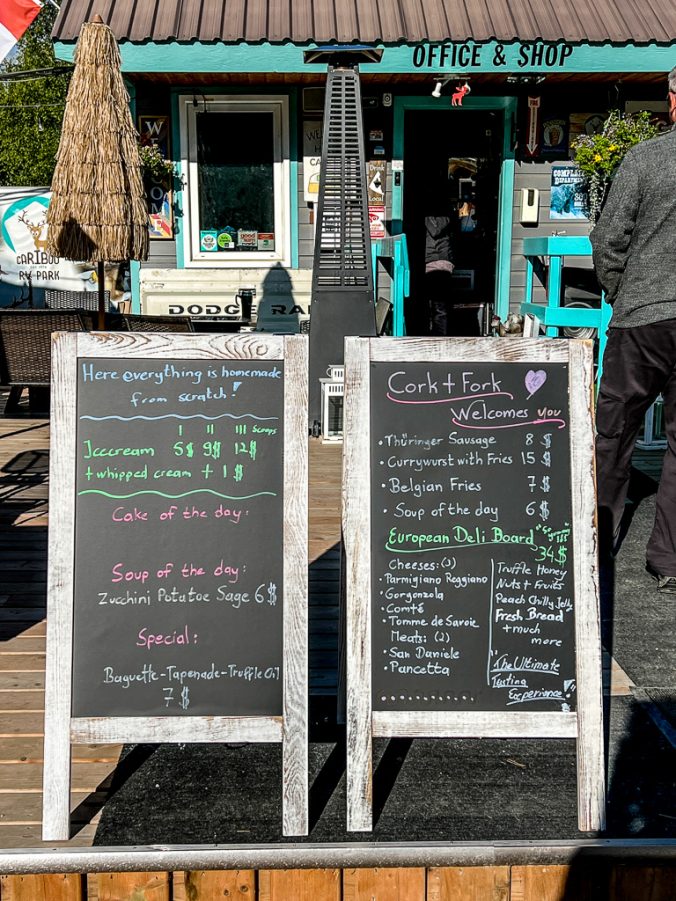 OFFICE & SHOP
CARIBOU
RV PARK
DODGE RA
Here everything is homemade
from scratch!
I II III Scoops
Icecream 5$ 9$ 12$
+whipped cream + 1$
Cake of the day:
Soup of the day:
Zucchini Potatoe Sage 6$
Special:
Baguette-Tapenade-Truffle Oil
7$
Cork + Fork
Welcomes you
• Thüringer Sausage 8$
• Currywurst with Fries 15$
• Belgian Fries 7$
• Soup of the day 6$
European Deli Board
34$
Cheeses: (3)
• Parmigiano Reggiano
• Gorgonzola
• Comté
• Tomme de Savoie
Meats: (2)
• San Daniele
• Pancetta
Truffle Honey
Nuts + Fruits
Peach Chilly Jelly
Fresh Bread
+ much
more
"The Ultimate
Tasting
Experience!"